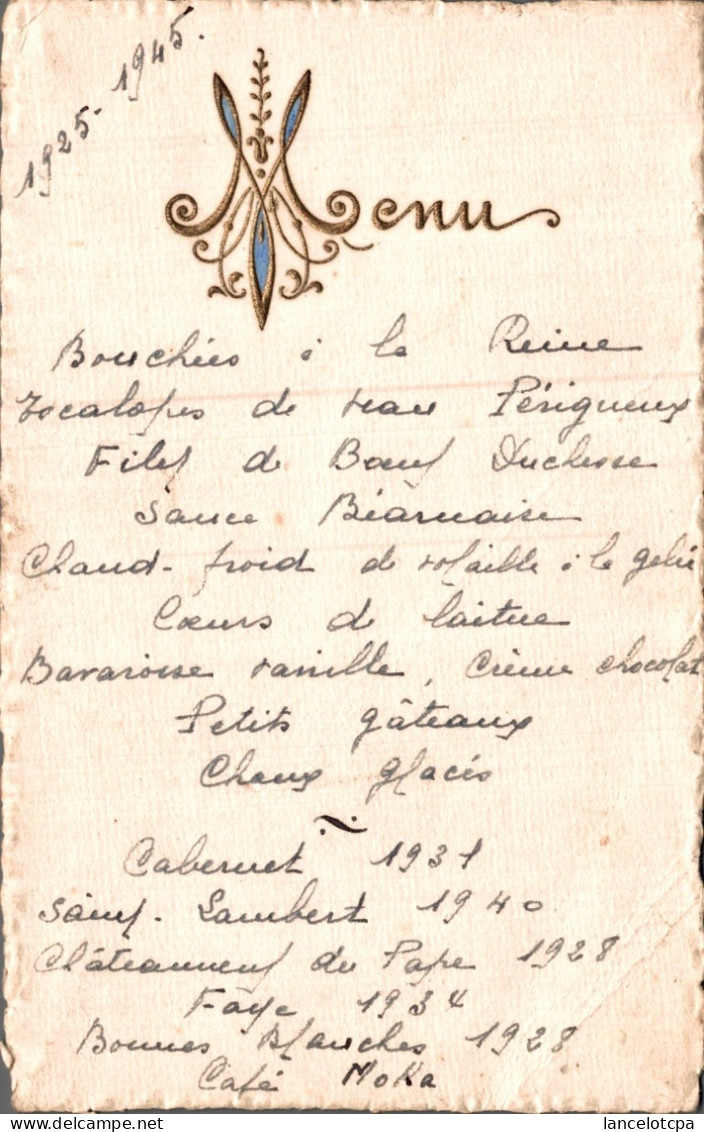 1925-1945.
Menu
Bouchées à la Reine
Escalopes de veau Périgueux
Filet de Bœuf Duchesse
Sauce Béarnaise
Chaud-froid de volaille à la gelée
Cœurs de laitue
Bavaroise vanille, Crème chocolat
Petits gâteaux
Choux glacés
~
Cabernet 1931
Saint-Lambert 1940
Châteauneuf du Pape 1928
Faye 1934
Bonnes Blanches 1928
Café Moka
lancelotcpa